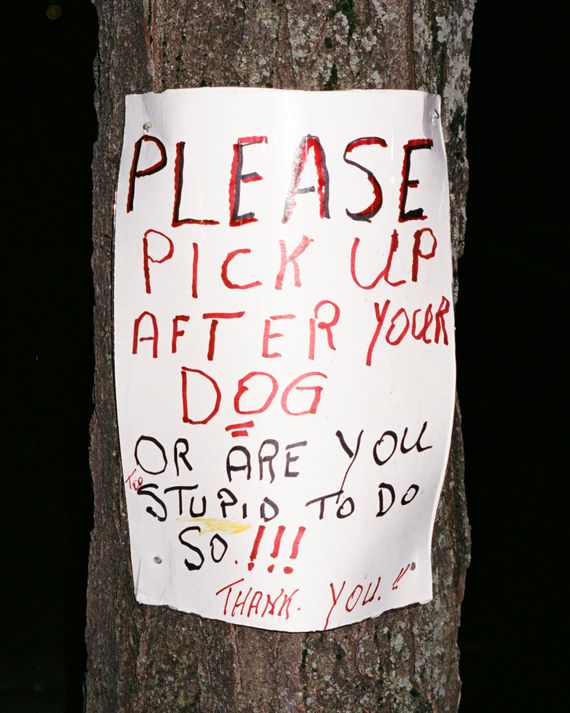 PLEASE
PICK UP
AFTER YOUR
DOG
OR ARE YOU
TOO STUPID TO DO
SO.!!!
THANK. YOU.!!